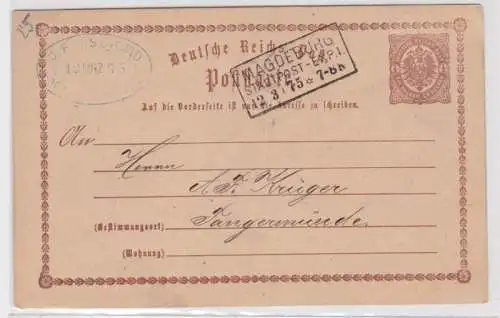 25
Deutsche Reichs
MAGDEBURG
STADTPOST-EXP. I.
12 3 75 7-8N
Auf die Vorderseite ist nur die Adresse zu schreiben.
An
Herrn
A. F. Krüger
(Bestimmungsort) Tangermünde.
(Wohnung)